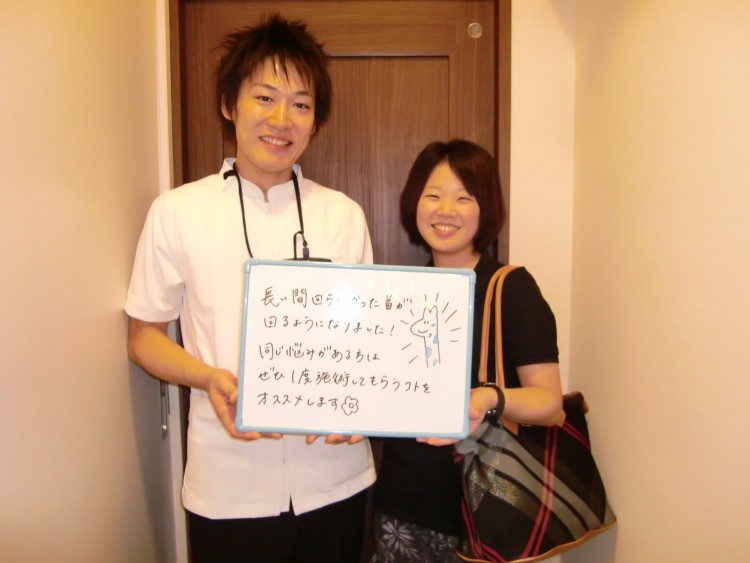 長い間回らなかった首が
回るようになりました!
同じ悩みがある方は
ぜひ1度施術してもらうコトを
オススメします